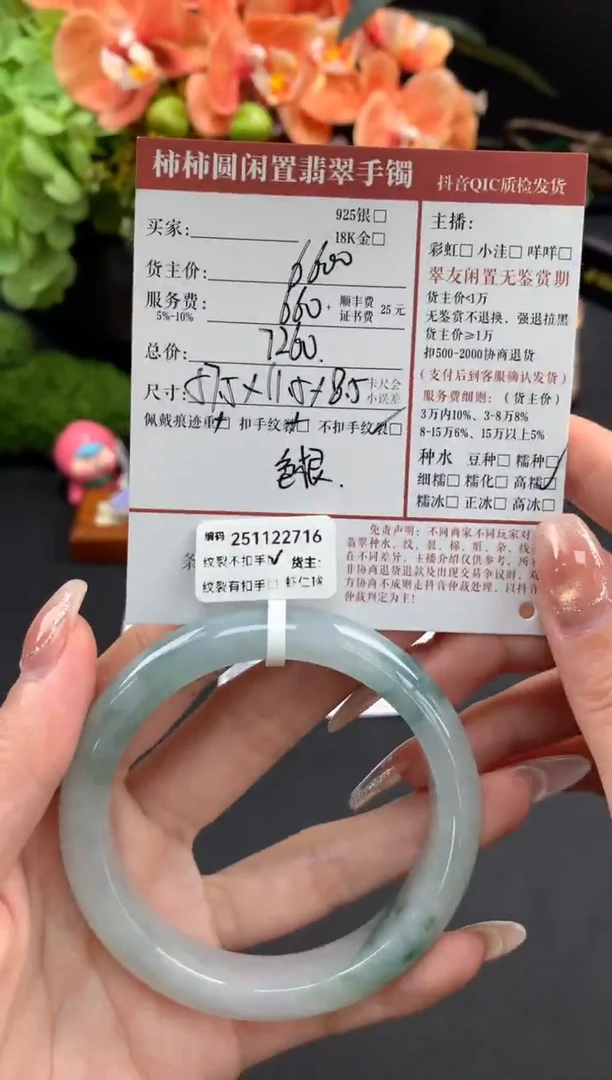 柿柿圆闲置翡翠手镯
抖音QIC质检发货
买家:
925银□
18K金□
货主价: 6600
服务费: 660 + 顺丰费 证书费 25元
5%-10%
总价: 7260.
尺寸: 57.5×11.5×8.5 卡尺会小误差
佩戴痕迹重□ 扣手纹裂□ 不扣手纹裂□
色根.
主播:
彩虹□ 小洼□ 咩咩□
翠友闲置无鉴赏期
货主价<1万
无鉴赏不退换、强退拉黑
货主价≥1万
扣500-2000协商退货
(支付后到客服确认发货)
服务费细则:(货主价)
3万内10%、3-8万8%
8-15万6%、15万以上5%
种水 豆种□ 糯种□
细糯□ 糯化□ 高糯□
糯冰□ 正冰□ 高冰□
免责声明:不同商家不同玩家对
翡翠种水、纹、裂、棉、脏、杂、线
在不同差异,主播介绍仅供参考,所
非协商退货退款及出现交易争议时,双
方协商不成则走抖音仲裁处理,以抖音
仲裁判定为主!
编码 251122716
纹裂不扣手✓ 货主:
纹裂有扣手□ 虾仁1